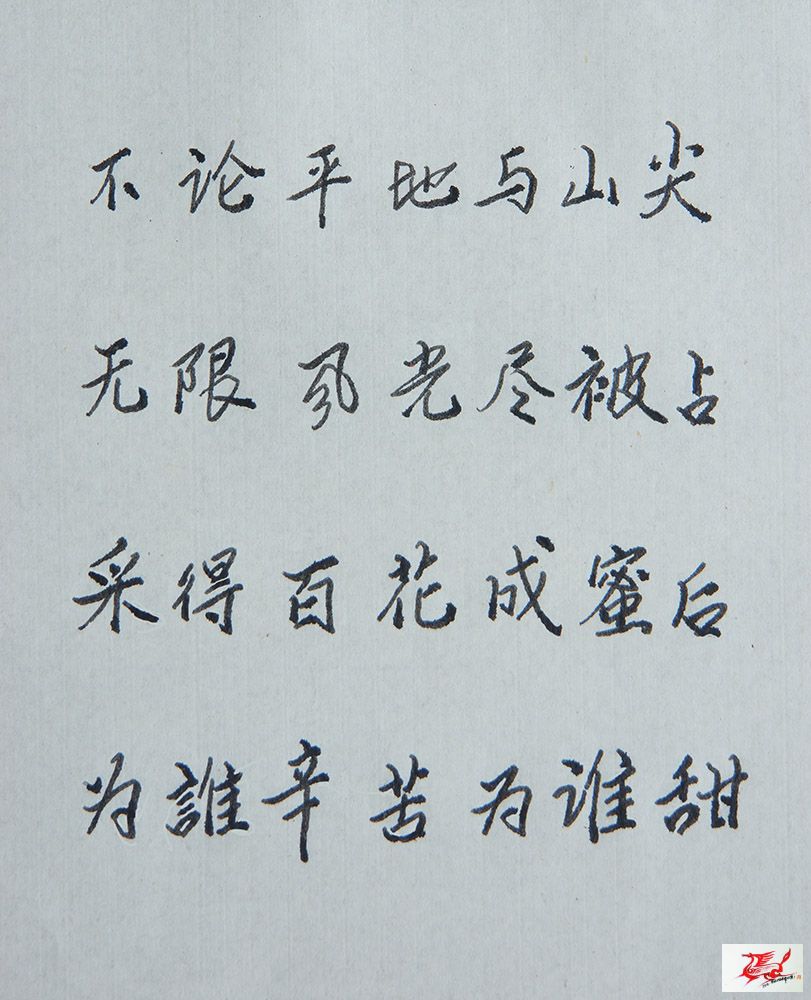 不论平地与山尖
无限风光尽被占
采得百花成蜜后
为誰辛苦为谁甜